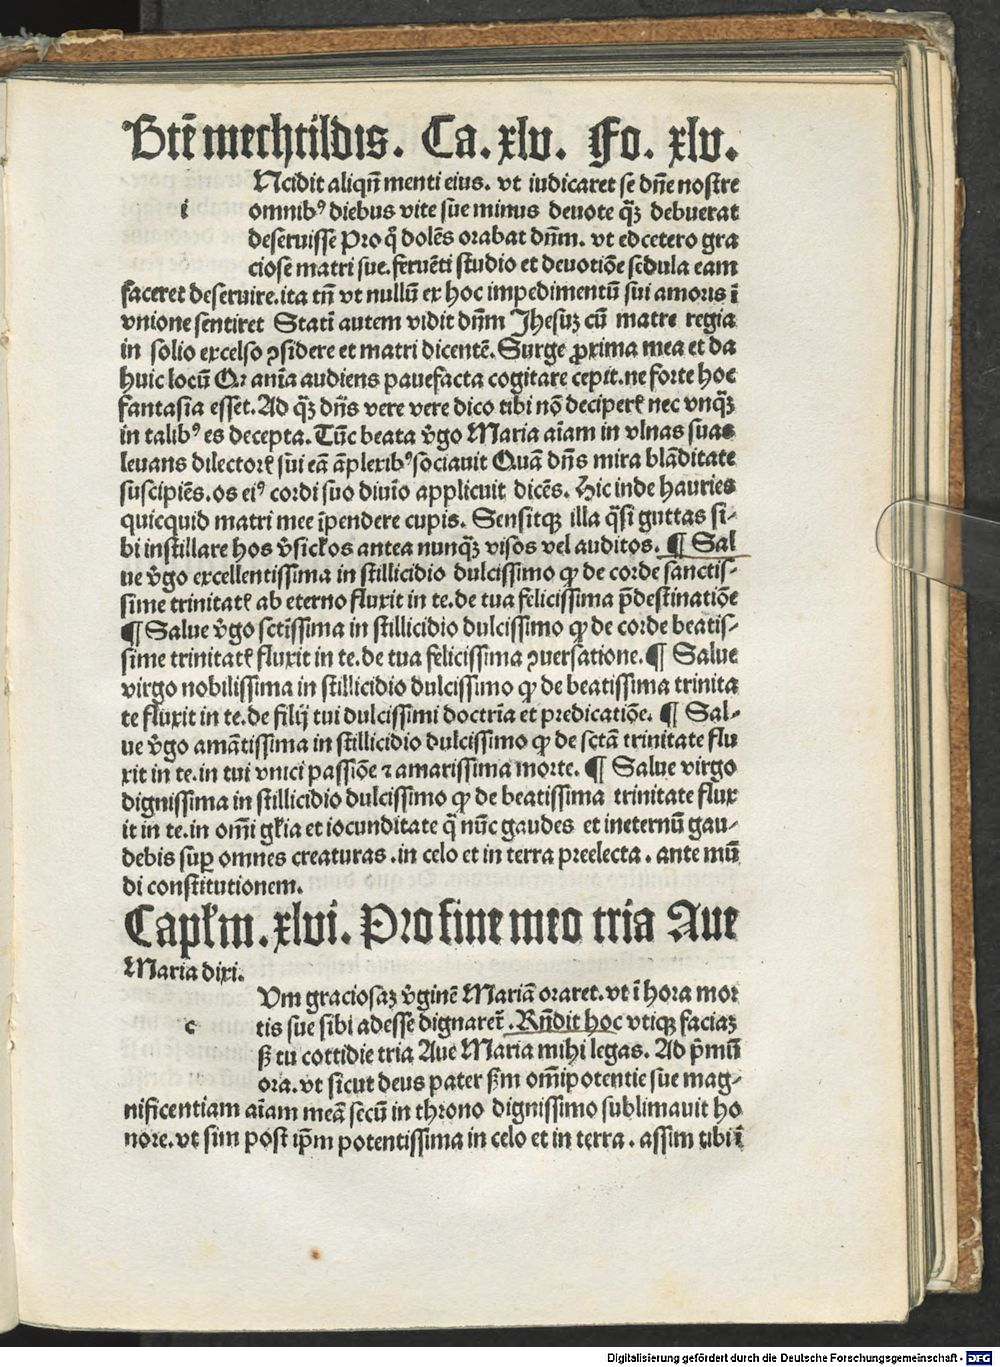 Btē mechtildis. Ca. xlv. Fo. xlv.
Ncidit aliqn̄ menti eius. vt iudicaret se dn̄e nostre
i omnibꝰ diebus vite sue minus deuote q̄ꝫ debuerat
deseruisse Pro qͦ dolēs orabat dn̄m. vt edcetero gra
ciose matri sue. feruēti studio et deuotiōe sedula eam
faceret deseruire. ita tn̄ vt nullū ex hoc impedimentū sui amoris ī
vnione sentiret Statī autem vidit dn̄m Jhesuꝫ cū matre regia
in solio excelso ꝯsidere et matri dicentē. Surge ꝓxima mea et da
huic locū Qꝛ anīa audiens pauefacta cogitare cepit. ne forte hoc
fantasia esset. Ad q̄ꝫ dn̄s vere vere dico tibi nō deciperꝭ nec vnq̄ꝫ
in talibꝰ es decepta. Tūc beata v̄go Maria aīam in vlnas suas
leuans dilectorꝭ sui eā āplexibꝰ sociauit Quā dn̄s mira blāditate
suscipiēs. os eiꝰ cordi suo diuīo applicuit dicēs. Hic inde hauries
quicquid matri mee īpendere cupis. Sensitqꝫ illa q̄si guttas si⸗
bi instillare hos v̄sicl̓os antea nunq̄ꝫ visos vel auditos. ¶ Sal
ue v̄go excellentissima in stillicidio dulcissimo qꝫ de corde sanctis⸗
sime trinitatꝭ ab eterno fluxit in te. de tua felicissima p̄destinatiōe
¶ Salue v̄go sctīssima in stillicidio dulcissimo qꝫ de corde beatis⸗
sime trinitatꝭ fluxit in te. de tua felicissima ꝯuersatione. ¶ Salue
virgo nobilissima in stillicidio dulcissimo qꝫ de beatissima trinita
te fluxit in te. de filij tui dulcissimi doctrīa et predicatiōe. ¶ Sal⸗
ue v̄go amātissima in stillicidio dulcissimo qꝫ de sctā trinitate flu
xit in te. in tui vnici passiōe ⁊ amarissima morte. ¶ Salue virgo
dignissima in stillicidio dulcissimo qꝫ de beatissima trinitate flux
it in te. in om̄i gl̓ia et iocunditate q̄ nūc gaudes et ineternū gau⸗
debis suꝑ omnes creaturas. in celo et in terra preelecta. ante mū
di constitutionem.
Capl̓m. xlvi. Pro fine meo tria Aue
Maria dixi.
Vm graciosaꝫ v̄ginē Mariā oraret. vt ī hora mor
c tis sue sibi adesse dignaret̄. Rn̄dit hoc vtiqꝫ faciaꝫ
ß tu cottidie tria Aue Maria mihi legas. Ad p̄mū
ora. vt sicut deus pater ßm om̄ipotentie sue mag⸗
nificentiam aīam meā secū in throno dignissimo sublimauit ho
nore. vt sim post ip̄m potentissima in celo et in terra. assim tibi ī
Digitalisierung gefördert durch die Deutsche Forschungsgemeinschaft - DFG